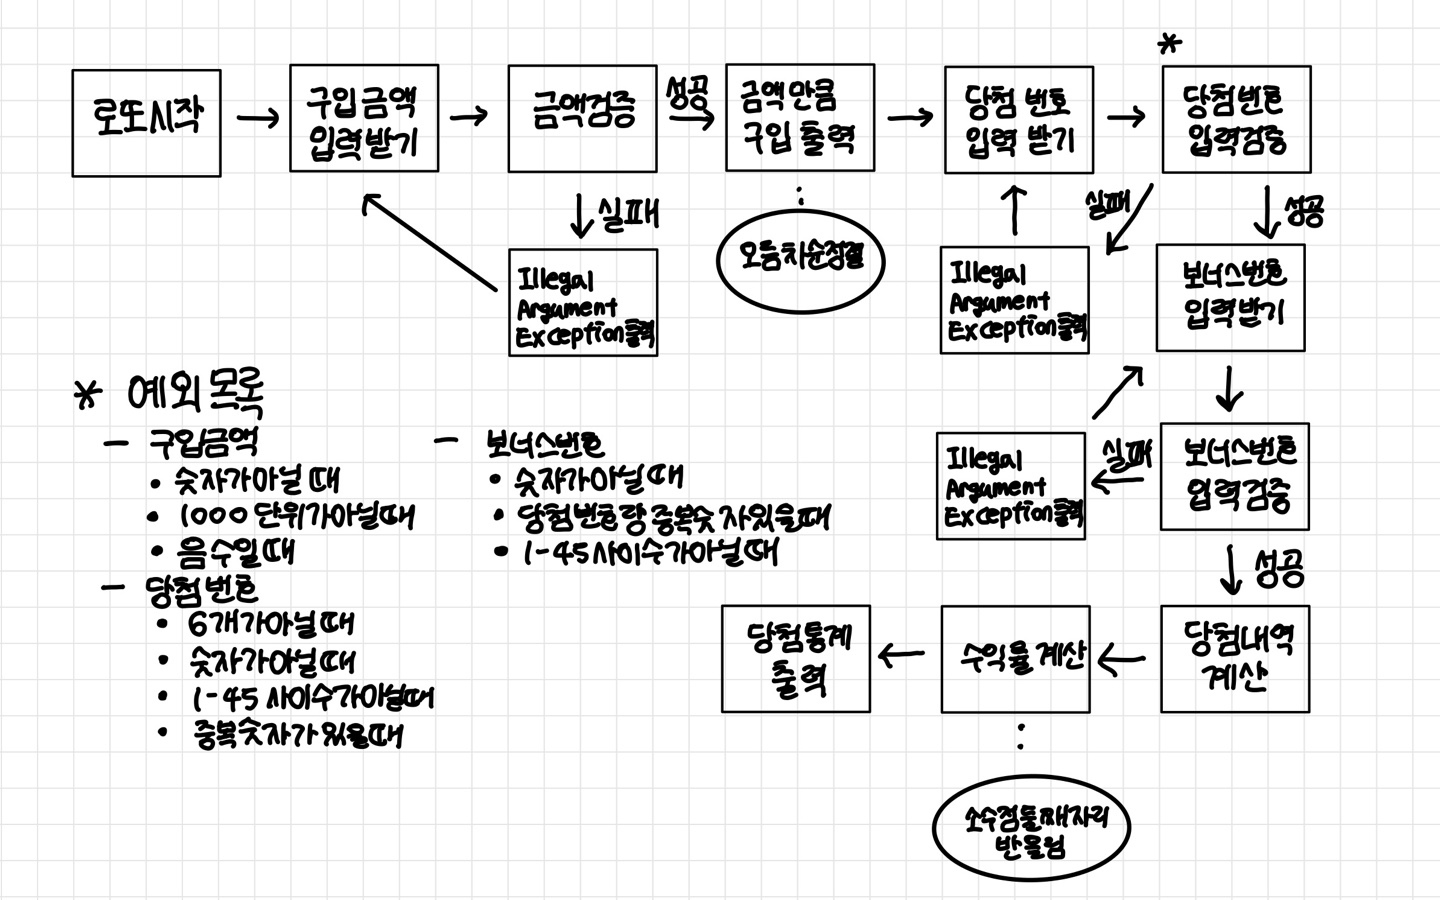 *
로또시작
구입금액
입력받기
금액검증
성공
금액만큼
구입 출력
당첨 번호
입력 받기
당첨번호
입력검증
실패
Illegal
Argument
Exception출력
오름차순정렬
실패
Illegal
Argument
Exception출력
성공
보너스번호
입력받기
실패
Illegal
Argument
Exception출력
보너스번호
입력검증
성공
당첨내역
계산
수익률 계산
당첨통계
출력
소수점둘째자리
반올림
* 예외 목록
- 구입금액
• 숫자가아닐 때
• 1000 단위가아닐때
• 음수일때
- 당첨번호
• 6개가아닐때
• 숫자가아닐때
• 1-45 사이수가아닐때
• 중복숫자가있을때
- 보너스번호
• 숫자가아닐때
• 당첨번호랑 중복숫자있을때
• 1-45사이수가아닐때